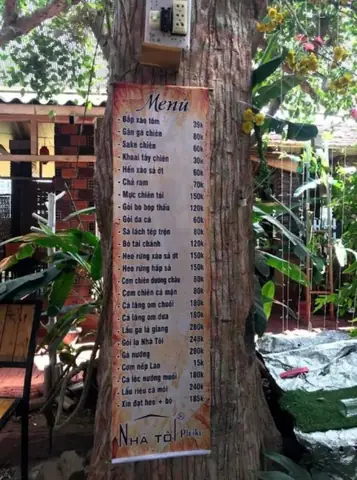 Menu
- Bắp xào tôm 28k
- Gân gà chiên 80k
- Sake chiên 60k
- Khoai tây chiên 30k
- Hến xào sả ớt 60k
- Chả ram 70k
- Mực chiên tỏi 150k
- Gỏi bò bóp thấu 120k
- Gỏi da cá 60k
- Sà lách tép trộn 80k
- Bò tái chanh 120k
- Heo rừng xào sả ớt 150k
- Heo rừng hấp sả 150k
- Cơm chiên dương châu 60k
- Cơm chiên cá mặn 80k
- Cá lăng om chuối 180k
- Cá lăng om dưa 180k
- Lẩu gà lá giang 280k
- Gỏi lo Nhà Tôi 245k
- Gà nướng 280k
- Cơm nếp Lào 15k
- Cá lóc nướng muối 180k
- Lẩu riêu cá mòi 240k
- Xin đặt heo + bò 185k
NHÀ TÔI Pleiku